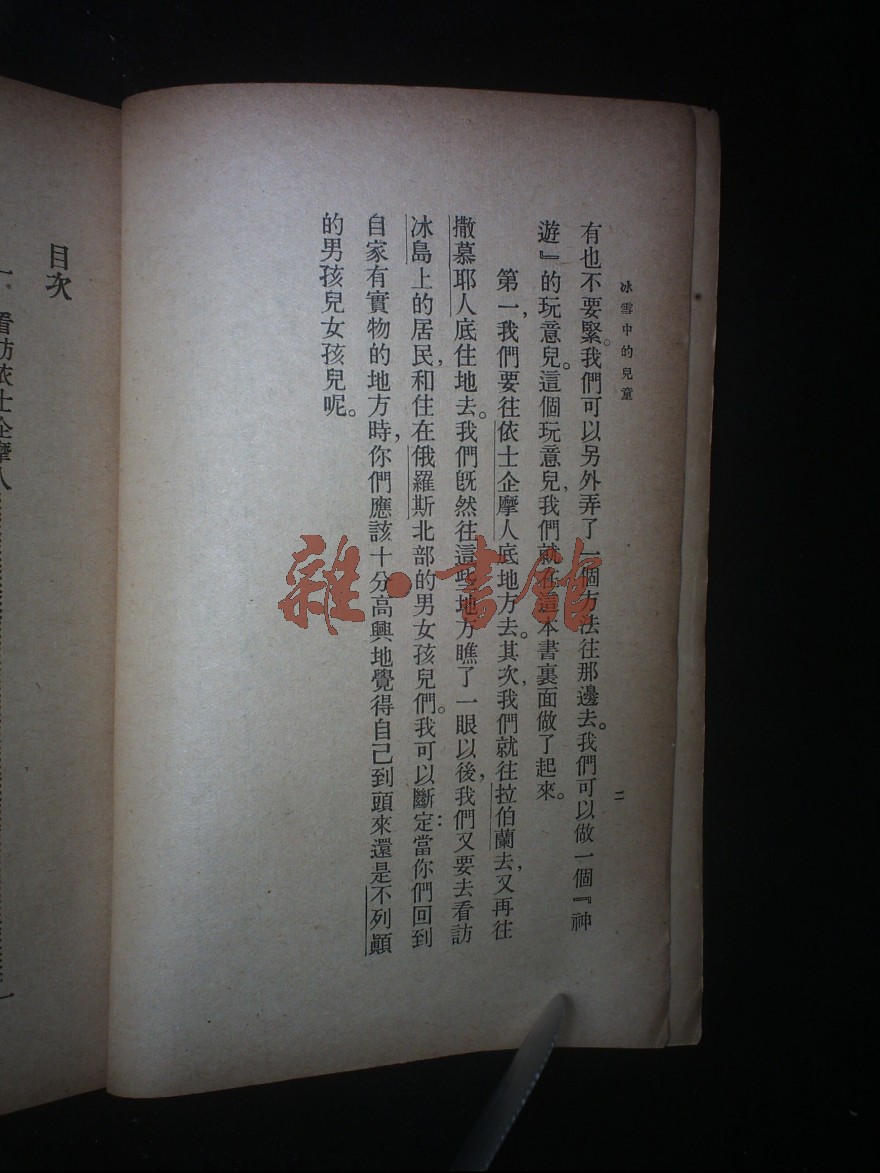 冰雪中的兒童
二
有也不要緊。我們可以另外弄了一個方法往那邊去。我們可以做一個『神
遊』的玩意兒。這個玩意兒，我們就在這本書裏面做了起來。
第一，我們要往依士企摩人底地方去。其次，我們就往拉伯蘭去，又再往
撒慕耶人底住地去。我們旣然往這些地方瞧了一眼以後，我們又要去看訪
冰島上的居民，和住在俄羅斯北部的男女孩兒們。我可以斷定：當你們回到
自家有實物的地方時，你們應該十分高興地覺得自己到頭來還是不列顚
的男孩兒女孩兒呢。
目次
一 看訪依士企摩人
一
雜·書館